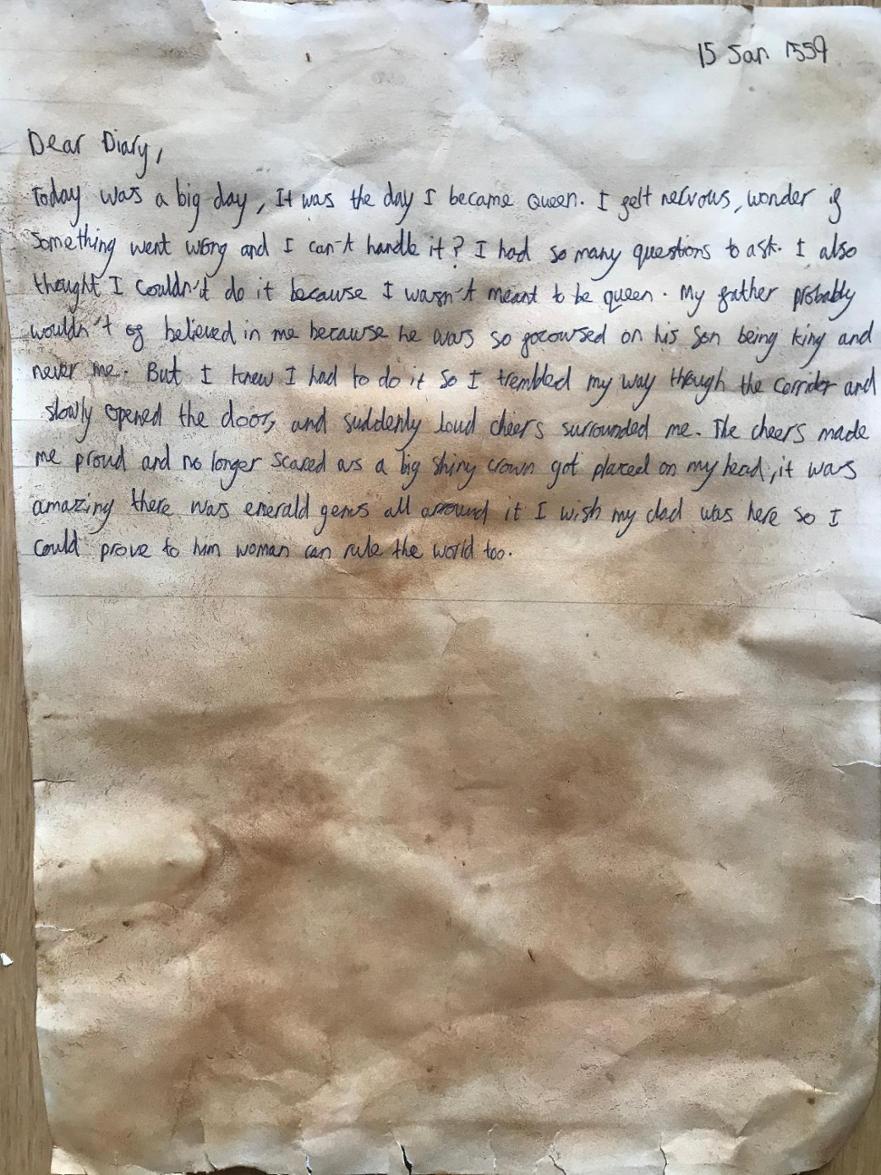 15 Jan 1559
Dear Diary,
Today was a big day, It was the day I became Queen. I felt nervous, wonder if
Something went wrong and I can't handle it? I had so many questions to ask. I also
thought I couldn't do it because I wasn't meant to be queen. My father probably
wouldn't of believed in me because he was so focowsed on his Son being king and
never me. But I knew I had to do it so I trembled my way though the corrider and
slowly opened the door, and suddenly loud cheers surrounded me. The cheers made
me proud and no longer scared as a big shiny crown got placed on my head, it was
amazing there was emerald gems all around it I wish my dad was here so I
could prove to him woman can rule the world too.